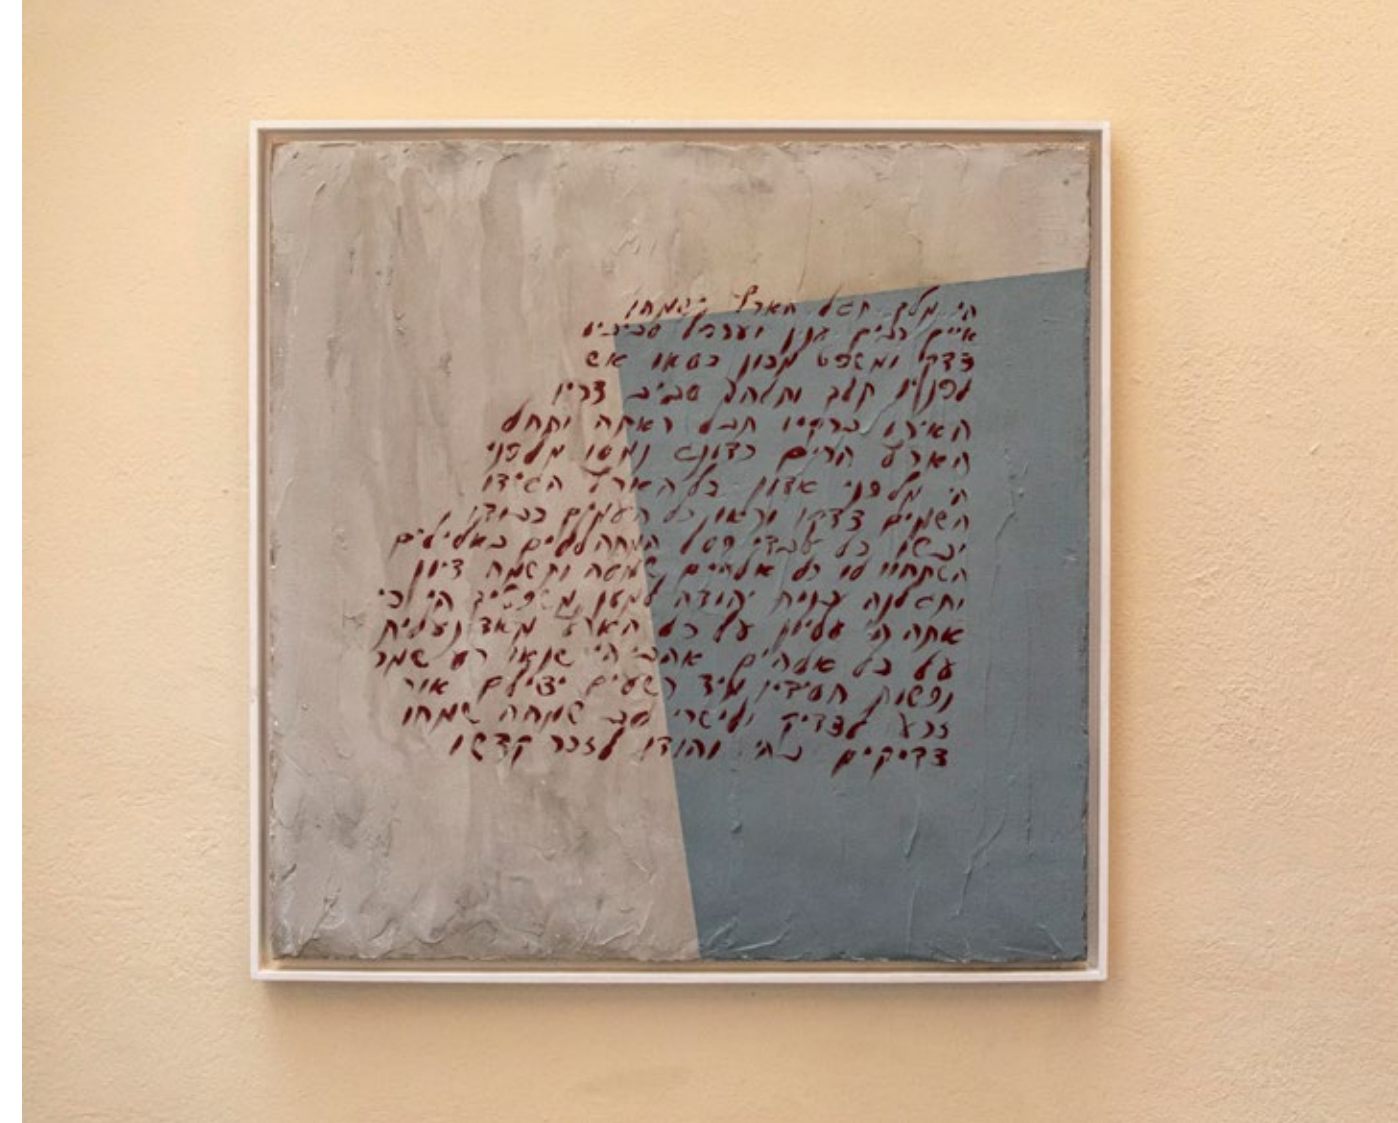 הי מלך תגל הארץ ישמחו
איים רבים ענן וערפל סביביו
צדק ומשפט מכון כסאו אש
לפניו תלך ותלהט סביב צריו
האירו ברקיו תבל ראתה ותחל
הארץ הרים כדונג נמסו מלפני
הי מלפני אדון כל הארץ הגידו
השמים צדקו וראו כל העמים כבודו
יבשו כל עבדי פסל המתהללים באלילים
השתחוו לו כל אלהים שמעה ותשמח ציון
ותגלנה בנות יהודה למען משפטיך הי כי
אתה הי עליון על כל הארץ מאד נעלית
על כל אלהים אהבי הי שנאו רע שמר
נפשות חסידיו מיד רשעים יצילם אור
זרע לצדיק ולישרי לב שמחה שמחו
צדיקים בהי והודו לזכר קדשו